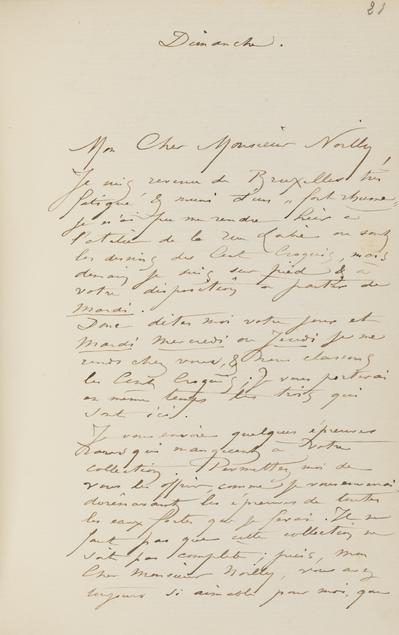 21
Dimanche.
Mon Cher Monsieur Noilly
Je suis revenu de Bruxelles très
fatigué & muni d'un "fort rhume"
je n'ai pu me rendre hier à
l'atelier de la rue Labie où sont
les dessins des Cent Croquis, mais
demain je suis sur pied & à
votre disposition à partir de
Mardi.
Donc dites moi votre jour et
Mardi mercredi ou Jeudi je me
rends chez vous, & nous classons
les Cent Croquis; Je vous porterai
en même temps les trois qui
sont ici.
Je vous envoie quelques épreuves
qui manquent à votre
collection. Permettez moi de
vous les offrir, comme je vous enverrai
dorénavant les épreuves de toutes
les eaux fortes que je ferai. Il ne
faut pas que cette collection ne
soit pas complète; puis, mon
Cher Monsieur Noilly, vous avez
toujours si aimable pour moi, que